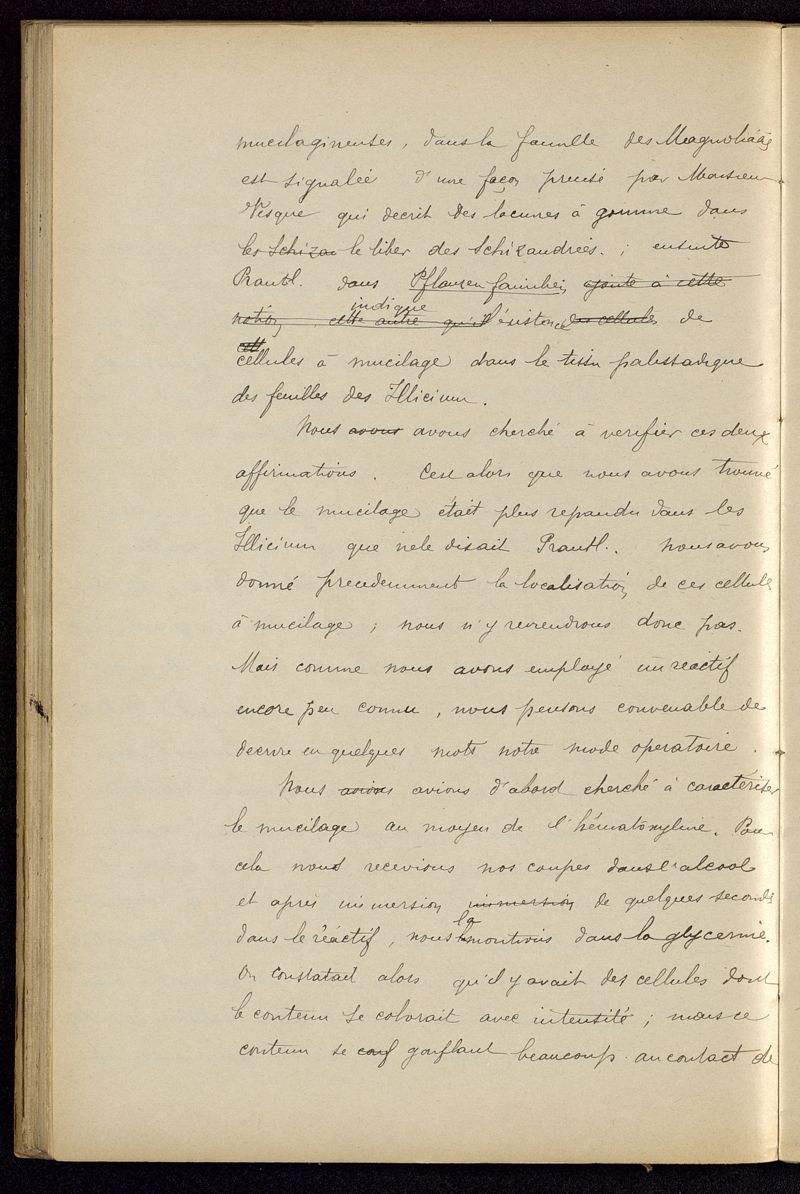 mucilagineuses, dans la famille des Magnoliacées
est signalée d'une façon precise par Monsieur
Vesque qui decrit des lacunes à gomme dans
les Schizan le liber des Schizandrées. ; ensuite
Prantl. dans Pflanzenfamilien ajoute à cette
notion cette autre qu'il indique l'existence des cellules de
cell
cellules à mucilage dans le tissu palissadique
des feuilles des Illicium.
Nous avons avons cherché à verifier ces deux
affirmations. C'est alors que nous avons trouvé
que le mucilage était plus repandu dans les
Illicium que ne le disait Prantl.. Nous avons
donné precedemment la localisation de ces cellules
à mucilage ; nous n'y reviendrons donc pas.
Mais comme nous avons employé un reactif
encore peu connu, nous pensons convenable de
decrire en quelques mots notre mode operatoire.
Nous avions avions d'abord cherché à caractériser
le mucilage au moyen de l'hématoxyline. Pour
cela nous recevions nos coupes dans l'alcool
et après immersion immersion de quelques secondes
dans le réactif, nous la montions dans la glycerine.
On constatait alors qu'il y avait des cellules dont
le contenu se colorait avec intensité ; mais ce
contenu se conf gonflant beaucoup au contact de